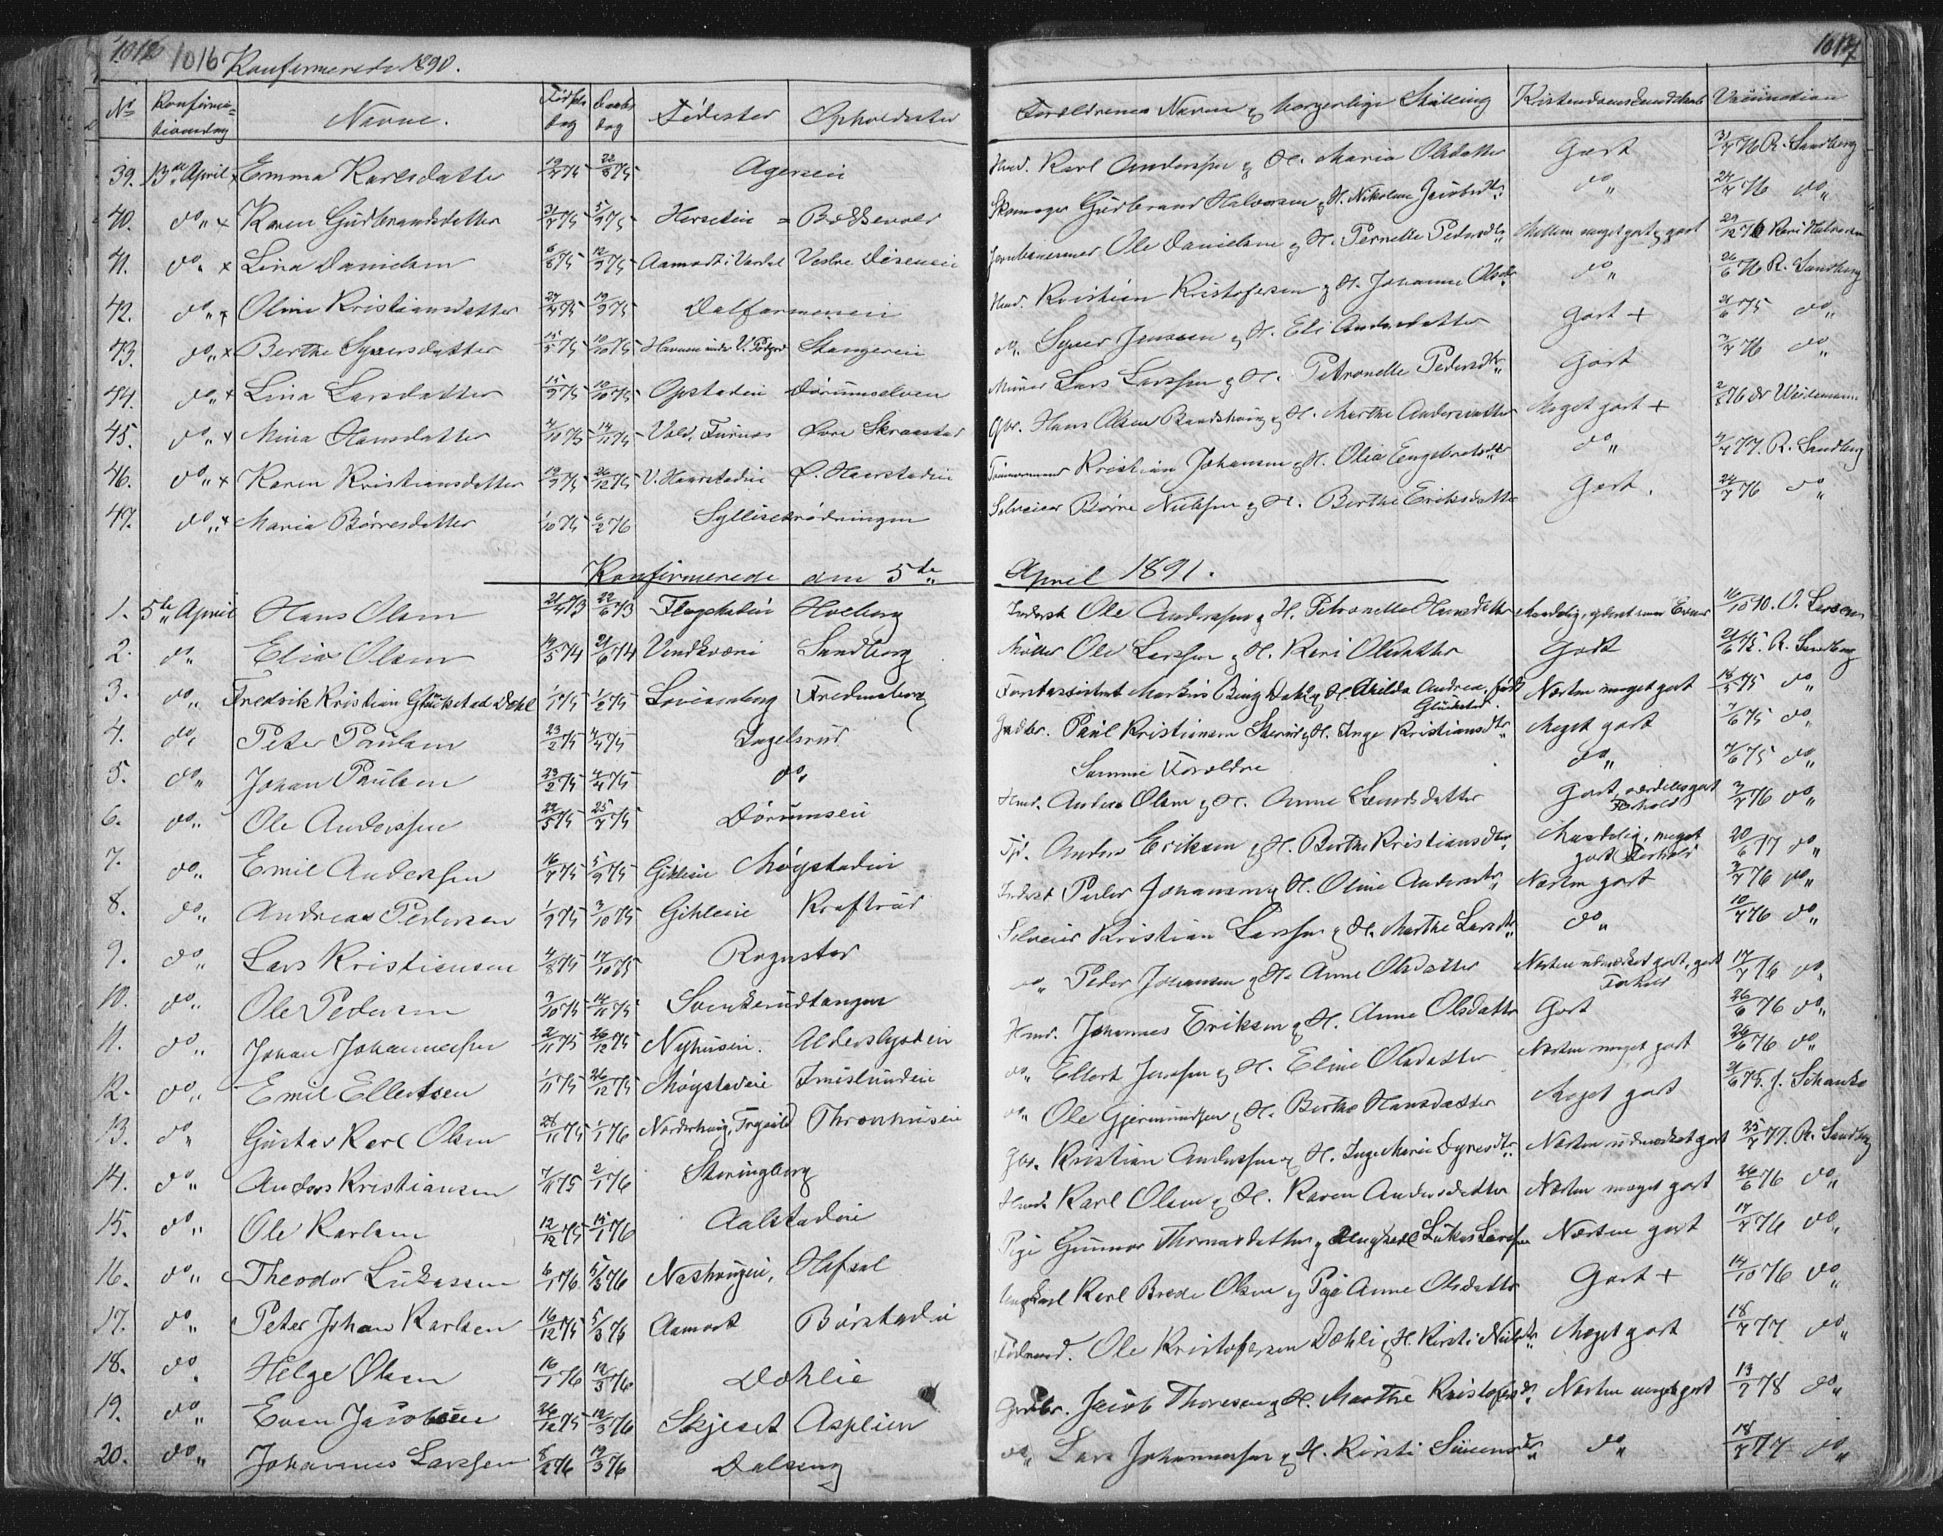 1016 Konfirmerede 1890.
1017
No Konfirmationsdag Navne. Fødselsdag Daabsdag Fødested Opholdssted Forældrenes Navne og borgerlige Stilling Kristendomskundskab Vaccination
39. 13de April x Emma Karlsdatter 19/4 75 22/8 75 Agereie Hmd. Karl Anderssen og H. Maria Olsdatter Godt 3/7 76 R. Sandberg
40. do „ x Karen Gudbrandsdatter 31/7 75 5/9 75 Skomager Gudbrand Halvorsen og H. Nikoline Jacobsdtr. do „ 24/7 76 do „
41. do „ x Lina Danielsen 6/8 75 12/9 75 Aamodt i Vardal Vestre Diseneie Ole Danielsen og H. Pernelle Pedersdtr. Mellem meget godt og godt 29/12 76
42. do „ x Oline Kristiansdatter 27/7 75 19/9 75 Hmd. Kristian Kristofersen og H. Johanne Olsdtr. do „ 26/6 76 R. Sandberg
43. do „ x Berthe Syversdatter 15/5 75 10/10 75 Stangereie do. Syver Jenssen og H. Eli Andersdatter Godt + 21/6 75 do „
44. do „ x Lina Larsdatter 15/9 75 10/10 75 Opstadeie Dørumselven Murer Lars Larssen og H. Petronelle Pedersdtr. Godt 3/7 76 do „
45. do „ x Mina Hansdatter 7/10 75 14/11 75 Vold, Furnes Øvre Skraastad Gbr. Hans Olsen og H. Marthe Andersdatter Meget godt + 2/8 76
46. do „ x Karen Kristiansdatter 19/9 75 26/12 75 V. Haarstadeie Ø. Haarstadeie Tømmermand Kristian Johansen og H. Olia Engebretsdtr. do „ 4/7 77. R. Sandberg
47. do „ x Maria Børresdatter 1/10 75 6/2 76 Selveier Børre Nielssen og H. Berthe Eriksdatter Godt. 24/7 76 do „
Konfirmerede den 5te April 1891.
1. 5te April Hans Olsen 21/4 73 22/6 73 Flagstadeie Hoeberg Inderst Ole Anderssen og H. Petronelle Hansdatter 16/10 90. O. Larsen
2. do „ Elias Olsen 19/5 74 21/6 74 Sandberg Møller Ole Larssen og H. Kari Olsdatter Godt 21/6 75. R. Sandberg
3. do „ Fredrik Kristian Glückstad Dahl 1/1 75 1/2 75 Lovisenberg Fredensborg Forstassistent Markus Bing Dahl og H. Akilda Andrea, født Glückstad. Næsten meget godt 15/5 75 do „
4. do „ Peter Paulsen 23/2 75 4/4 75 Ingelsrud Gaardbr. Paul Kristiansen og H. Inge Kristiansdtr. Meget godt 7/6 75 do „
5. do „ Johan Paulsen 23/2 75 4/4 75 do „ Samme Forældre do „ 7/6 75 do „
6. do „ Ole Anderssen 22/5 75 25/7 75 Dørumseie Hmd. Anders Olsen og H. Anne Larsdatter Godt, særdeles godt Forhold 3/7 76 do „
7. do „ Emil Anderssen 16/7 75 5/9 75 Gihleeie Møystadeie Tjr. Anders Eriksen og H. Berthe Kristiansdtr. Maadelig, meget godt Forhold 20/6 77 do „
8. do „ Andreas Pedersen 1/9 75 3/10 75 Gihleeie Kraftrud Inderst Peder Johansen og H. Oline Andersdtr. Næsten godt 3/7 76 do „
9. do „ Lars Kristiansen 4/8 75 17/10 75 Rognstad Selveier Kristian Larssen og H. Marthe Larsdtr. do „ 10/7 76 do „
10. do „ Ole Pedersen 3/10 75 14/11 75 Svenkerudtangen do „ Peder Johansen og H. Anne Olsdatter Næsten udmærket godt, godt Forhold 17/7 76 do „
11. do „ Johan Johannessen 2/11 75 26/12 75 Nyhuseie. Alderslysteie Hmd. Johannes Eriksen og H. Anne Olsdatter Godt 26/6 76 do „
12. do „ Emil Ellertsen 1/11 75 26/12 75 Møystadeie Imislundeie do „ Ellert Jenssen og H. Eline Olsdatter Næsten meget godt 26/6 76 do „
13. do „ Gustav Karl Olsen 28/11 75 1/1 76 Norderhaug, Trysild Thronhuseie do „ Ole Gjermundsen og H. Berthe Hansdatter Meget godt 21/6 75. J. Schanke
14. do „ Anders Kristiansen 7/11 75 2/1 76 Skeringberg Gbr. Kristian Anderssen og H. Inge Marie Syversdtr. Næsten udmærket godt 25/7 77. R. Sandberg
15. do „ Ole Karlsen 12/12 75 15/1 76 Aalstadeie Hmd. Karl Olsen og H. Karen Andersdatter Næsten meget godt 26/6 76 do „
16. do „ Theodor Lukassen 6/1 76. 5/3 76 Nashaugeie, Hafsal Pige Gunnor Thomasdatter og Ungkarl Lukas Larssen Næsten godt 17/7 76 do „
17. do „ Peter Johan Karlsen 16/12 75 5/3 76 Aamodt Børstadeie Ungkarl Karl Brede Olsen og Pige Anne Olsdatter Godt + 14/10 76 do „
18. do „ Helge Olsen 16/1 76 12/3 76 Dæhlie Ole Kristofersen Dæhli og H. Kirsti Nielsdtr. Meget godt 18/7 77 do „
19. do „ Even Jacobsen 26/12 75 12/3 76 Skjeset Aspeien Gaardbr. Jacob Thoresen og H. Marthe Kristofersdtr. Næsten meget godt 13/7 78 do „
20. do „ Johannes Larssen 8/2 76 19/3 76 Dalseng do „ Lars Johannessen og H. Kirsti Simensdtr. do „ 18/7 77 do „